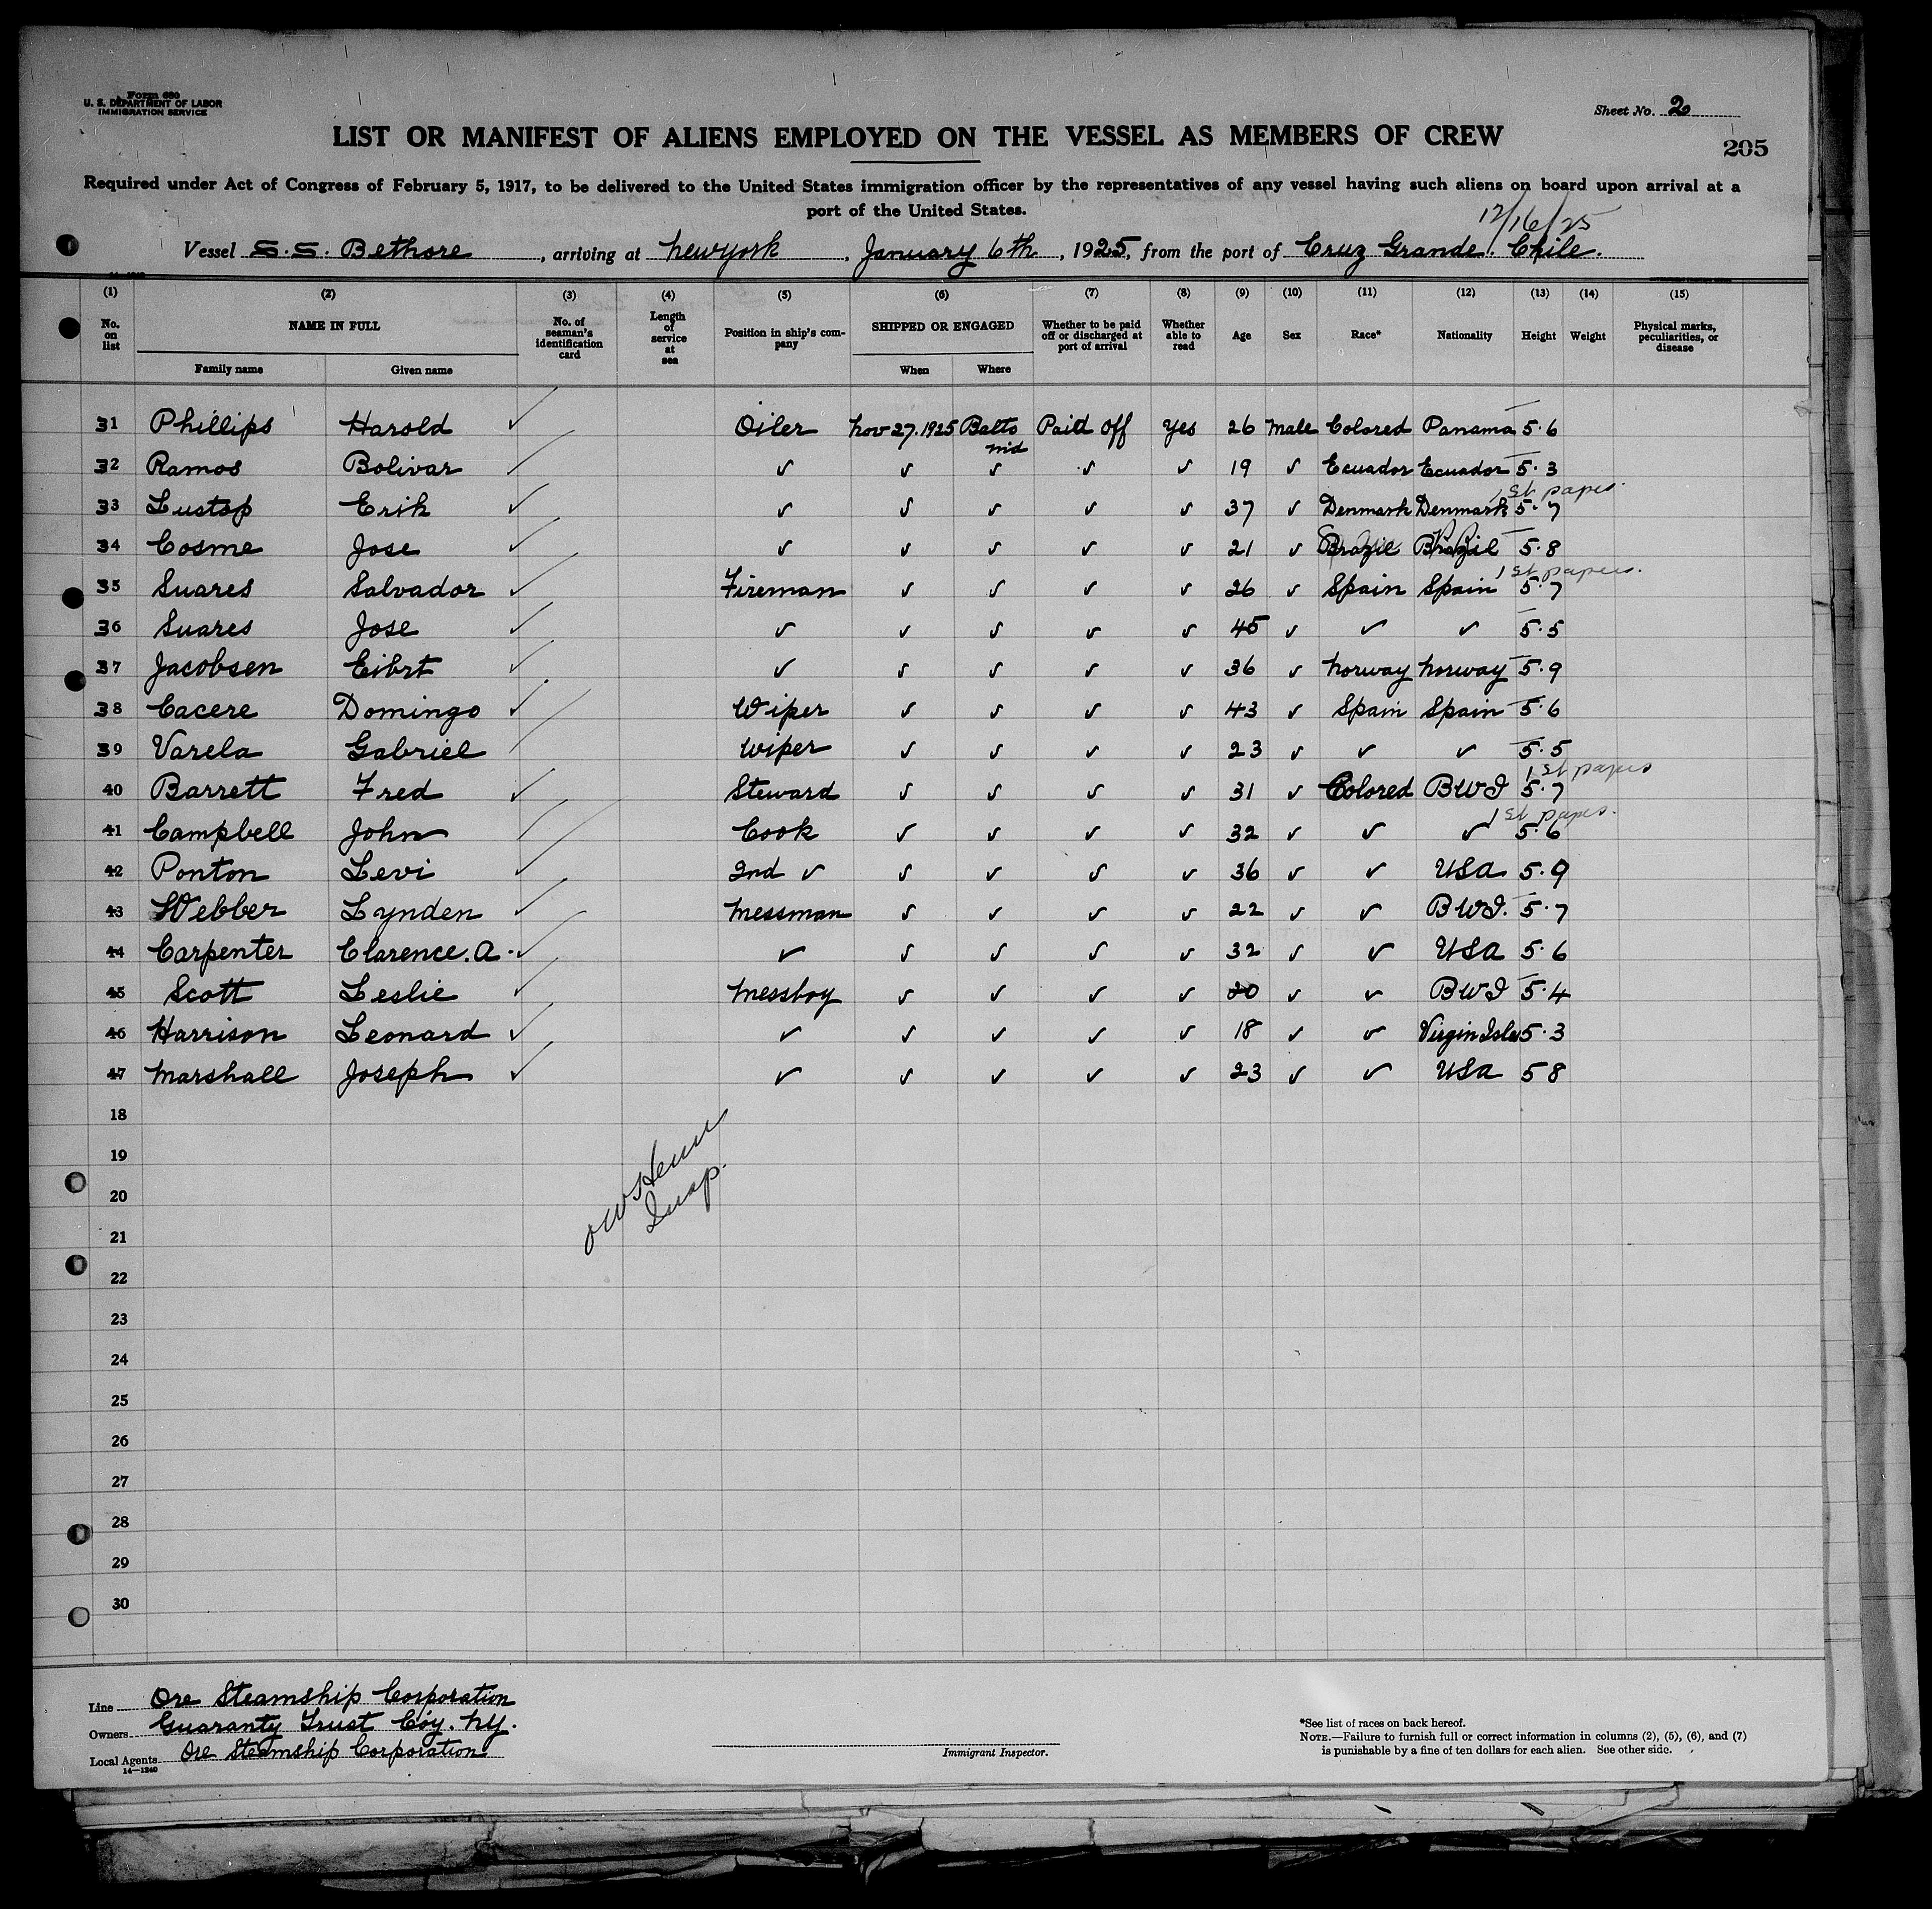 Form 680
U. S. DEPARTMENT OF LABOR
IMMIGRATION SERVICE
Sheet No. 2
205
LIST OR MANIFEST OF ALIENS EMPLOYED ON THE VESSEL AS MEMBERS OF CREW
Required under Act of Congress of February 5, 1917, to be delivered to the United States immigration officer by the representatives of any vessel having such aliens on board upon arrival at a
port of the United States.
12/16/25
Vessel S.S. Bethore, arriving at New york, January 6th, 1925, from the port of Cruz Grande. Chile.
(1) (2) (3) (4) (5) (6) (7) (8) (9) (10) (11) (12) (13) (14) (15)
No. on list NAME IN FULL Family name Given name No. of seaman's identification card Length of service at sea Position in ship's company SHIPPED OR ENGAGED When Where Whether to be paid off or discharged at port of arrival Whether able to read Age Sex Race* Nationality Height Weight Physical marks, peculiarities, or disease
31 Phillips Harold ✓ Oiler Nov 27. 1925 Balto Md Paid Off Yes 26 Male Colored Panama 5.6
32 Ramos Bolivar ✓ ✓ ✓ ✓ ✓ ✓ 19 ✓ Ecuador Ecuador 5.3
33 Lustop Erik ✓ ✓ ✓ ✓ ✓ ✓ 37 ✓ Denmark Denmark 5.7 1st papers.
34 Cosme Jose ✓ ✓ ✓ ✓ ✓ ✓ 21 ✓ Brazil Brazil 5.8
35 Suares Salvador ✓ Fireman ✓ ✓ ✓ ✓ 26 ✓ Spain Spain 5.7 1st papers.
36 Suares Jose ✓ ✓ ✓ ✓ ✓ ✓ 45 ✓ ✓ ✓ 5.5
37 Jacobsen Eibrt ✓ ✓ ✓ ✓ ✓ ✓ 36 ✓ Norway Norway 5.9
38 Cacere Domingo ✓ Wiper ✓ ✓ ✓ ✓ 43 ✓ Spain Spain 5.6
39 Varela Gabriel ✓ Wiper ✓ ✓ ✓ ✓ 23 ✓ ✓ ✓ 5.5
40 Barrett Fred ✓ Steward ✓ ✓ ✓ ✓ 31 ✓ Colored BWI 5.7 1st papers
41 Campbell John ✓ Cook ✓ ✓ ✓ ✓ 32 ✓ ✓ ✓ 5.6 1st papers.
42 Ponton Levi ✓ 2nd ✓ ✓ ✓ ✓ ✓ 36 ✓ ✓ USA 5.9
43 Webber Lynden ✓ Messman ✓ ✓ ✓ ✓ 22 ✓ ✓ BWI. 5.7
44 Carpenter Clarence. A. ✓ ✓ ✓ ✓ ✓ ✓ 32 ✓ ✓ USA 5.6
45 Scott Leslie ✓ Messboy ✓ ✓ ✓ ✓ 20 ✓ ✓ BWI 5.4
46 Harrison Leonard ✓ ✓ ✓ ✓ ✓ ✓ 18 ✓ ✓ Virgin Isles 5.3
47 Marshall Joseph ✓ ✓ ✓ ✓ ✓ ✓ 23 ✓ ✓ USA 5 8
18
19
20
Insp.
21
22
23
24
25
26
27
28
29
30
Line Ore Steamship Corporation
Owners Guaranty Trust Coy. NY.
Local Agents Ore Steamship Corporation
14—1240
Immigrant Inspector.
*See list of races on back hereof.
NOTE.—Failure to furnish full or correct information in columns (2), (5), (6), and (7)
is punishable by a fine of ten dollars for each alien. See other side.